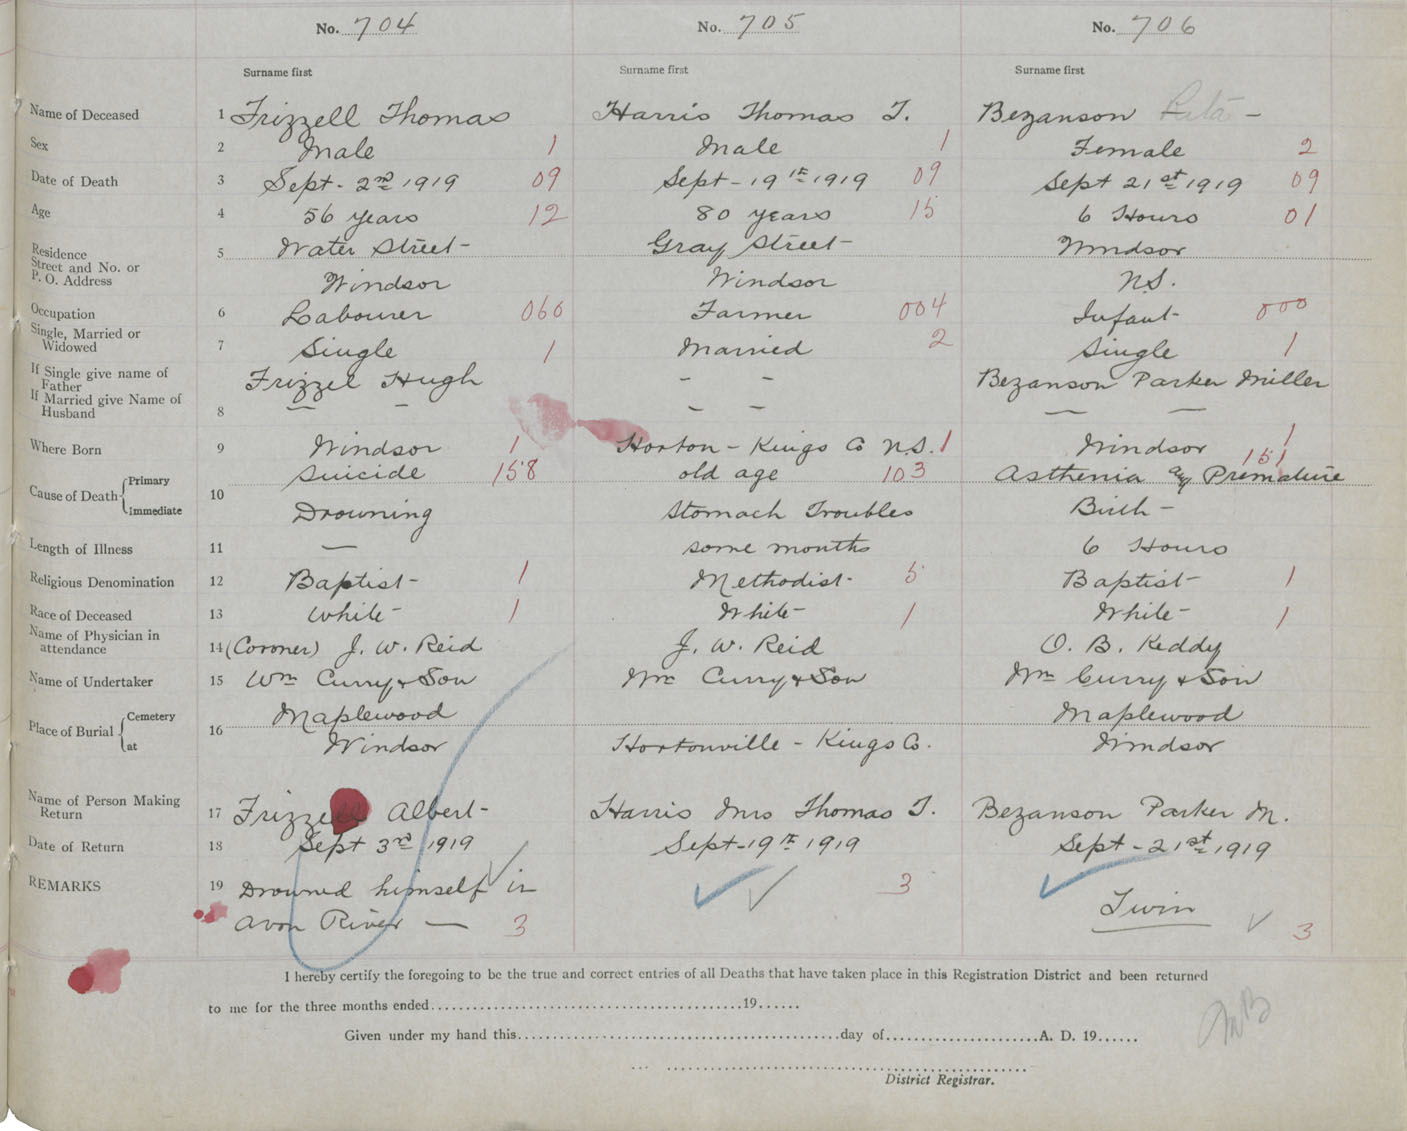 No. 704 No. 705 No. 706
Surname first Surname first Surname first
Name of Deceased 1 Frizzell Thomas Harris Thomas T. Bezanson Rita -
Sex 2 Male 1 Male 1 Female 2
Date of Death 3 Sept- 2nd 1919 09 Sept- 19th 1919 09 Sept 21st 1919 09
Age 4 56 years 12 80 years 15 6 Hours 01
Residence
Street and No. or 5 Water Street- Gray Street- Windsor
P. O. Address Windsor Windsor N.S.
Occupation 6 Labourer 060 Farmer 004 Infant- 000
Single, Married or
Widowed 7 Single 1 Married 2 Single 1
If Single give name of
Father Frizzel Hugh - - Bezanson Parker Miller
If Married give Name of
Husband 8 - - - - - -
Where Born 9 Windsor 1 Horton - Kings Co N.S. 1 Windsor 1
Cause of Death Primary Suicide 158 old age 103 Asthenia Premature 151
Immediate 10 Drowning Stomach Troubles Birth -
Length of Illness 11 - some months 6 Hours
Religious Denomination 12 Baptist- 1 Methodist- 5 Baptist- 1
Race of Deceased 13 White- 1 White- 1 White- 1
Name of Physician in
attendance 14 (Coroner) J. W. Reid J. W. Reid O. B. Keddy
Name of Undertaker 15 Wm Curry & Son Wm Curry & Son Wm Curry & Son
Place of Burial Cemetery Maplewood Maplewood
at 16 Windsor Hortonville - Kings Co. Windsor
Name of Person Making
Return 17 Frizzell Albert- Harris Mrs Thomas T. Bezanson Parker M.
Date of Return 18 Sept 3rd 1919 Sept-19th 1919 Sept- 21st 1919
REMARKS 19 Drowned himself in 3 Twin
Avon River - 3 3
I hereby certify the foregoing to be the true and correct entries of all Deaths that have taken place in this Registration District and been returned
to me for the three months ended 19
Given under my hand this day of A. D. 19
District Registrar.